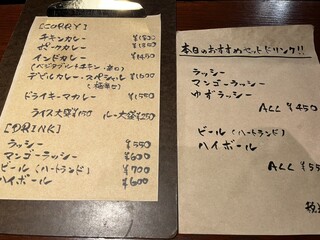 [CURRY]
チキンカレー ¥1300
ポークカレー ¥1300
インドカレー ¥1450
(ベジタブル+チキン・辛口)
デビルカレー・スペシャル ¥1600
(極辛口)
ドライキーマカレー ¥1500
ライス大盛¥150 ルー大盛¥250
[DRINK]
ラッシー ¥550
マンゴーラッシー ¥600
ビール(ハートランド) ¥700
ハイボール ¥600
本日のおすすめセットドリンク!!
ラッシー
マンゴーラッシー
ゆずラッシー
ALL ¥450
ビール(ハートランド)
ハイボール
ALL ¥55